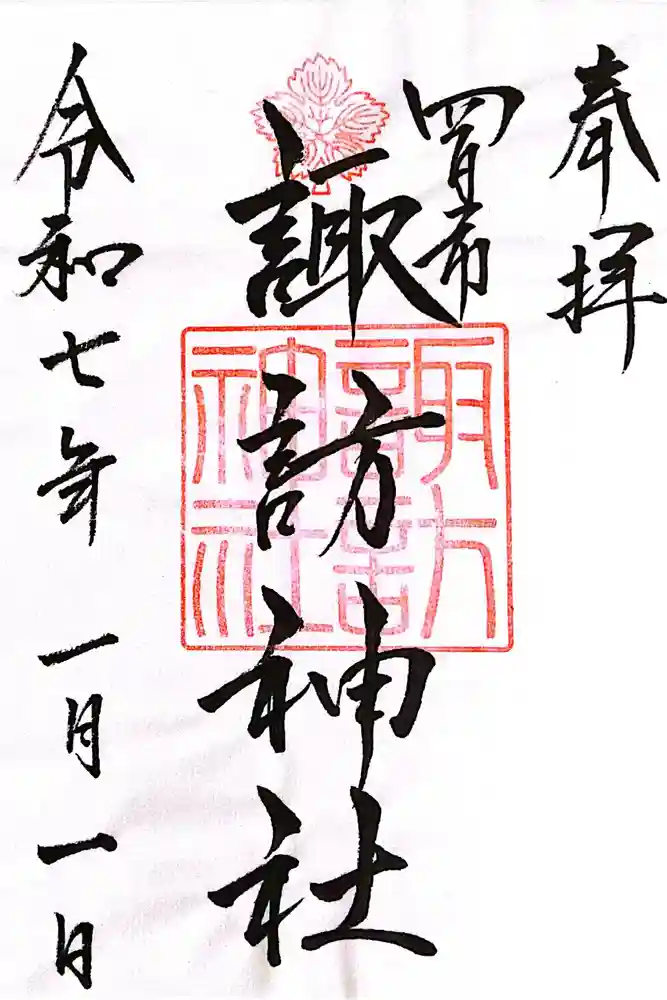 奉拝
四日市
諏訪神社
諏訪神社
令和七年 一月一日